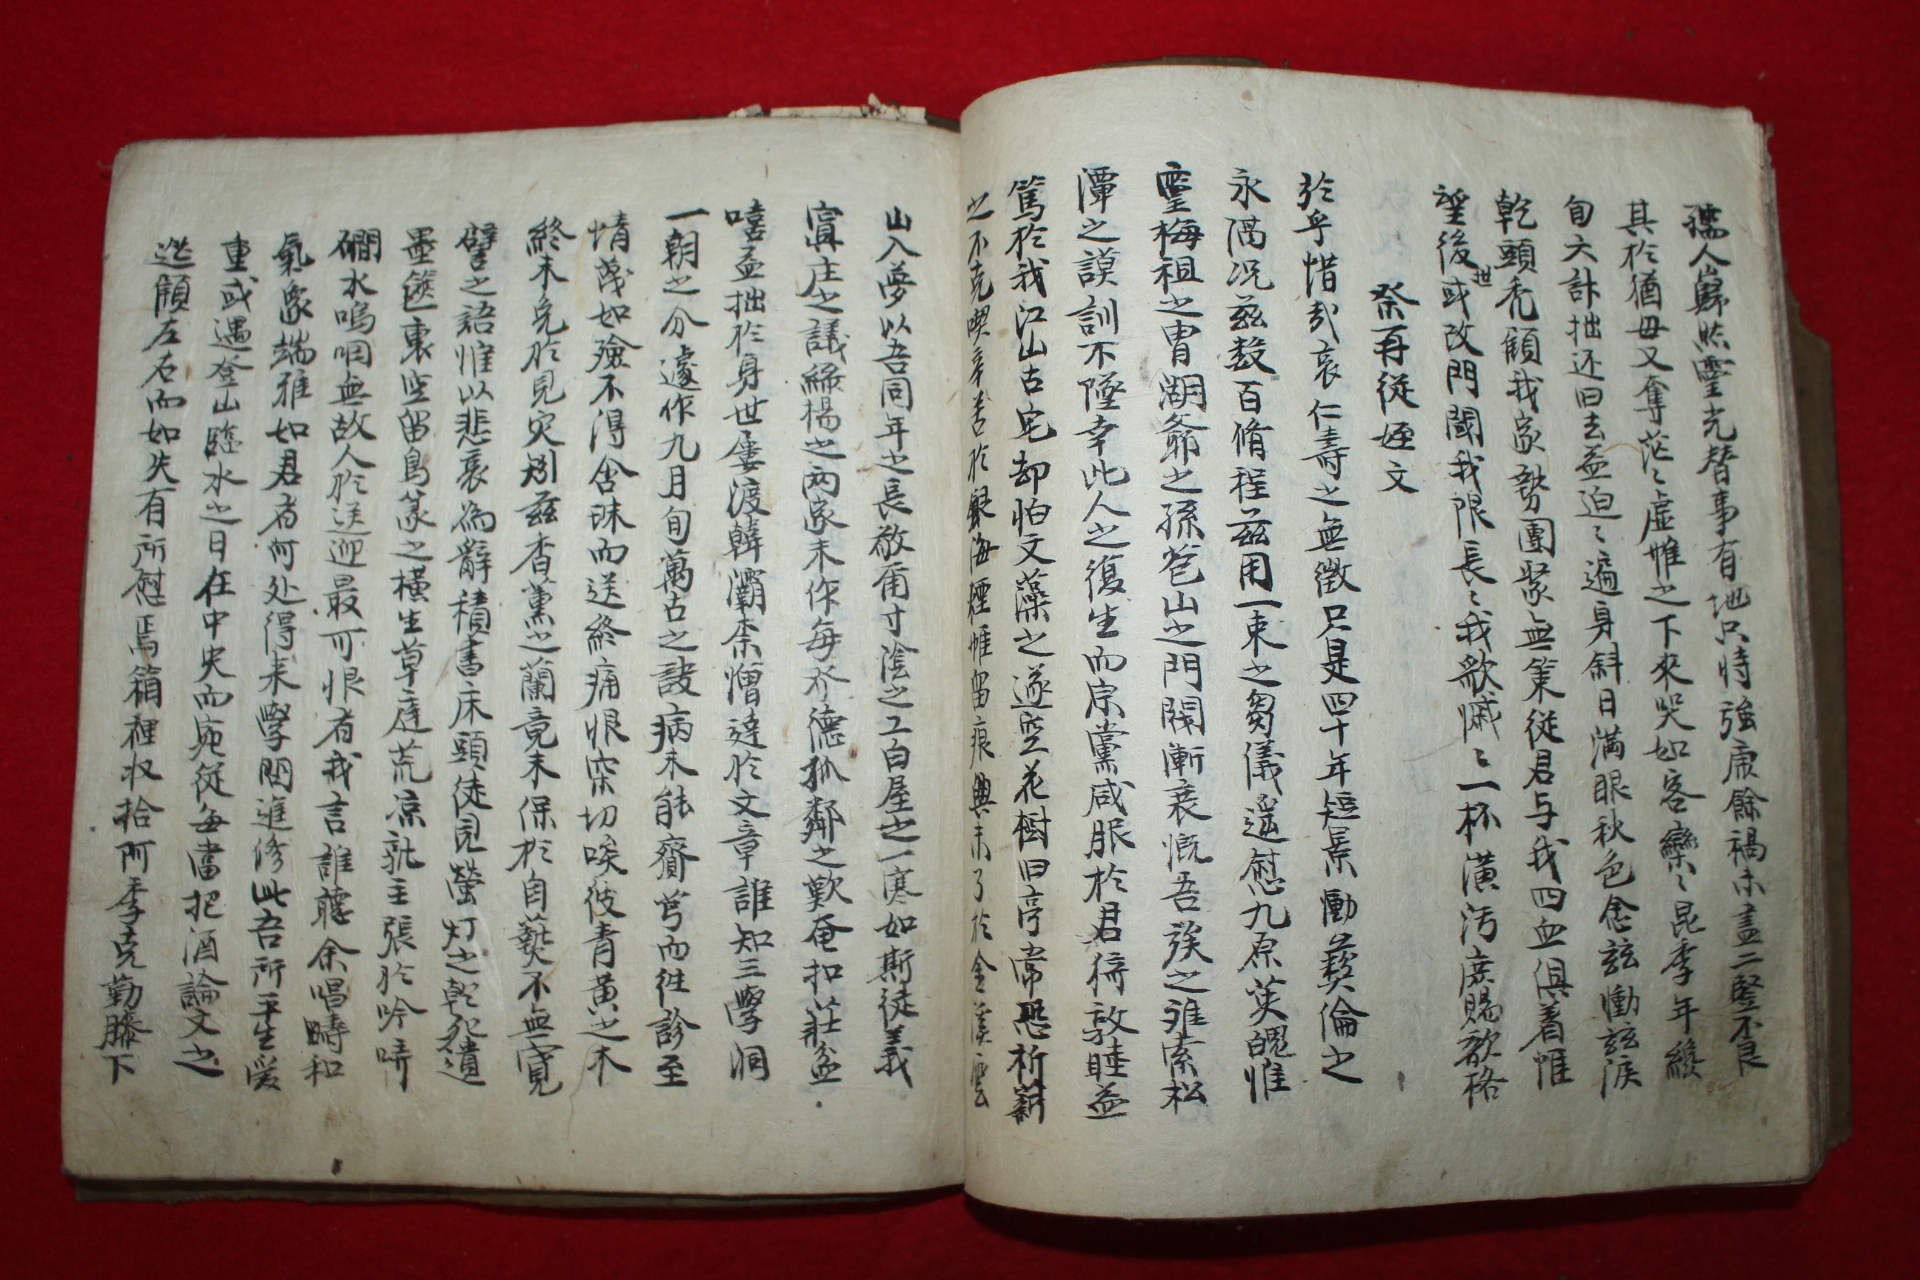 孺人巋然靈光替事有地只恃強康餘禍未盡二竪不良
其於猶母又奪茫〻虛帷之下來哭如客欒〻昆季年纔
旬六計拙还旧去益迫〻遍身斜日滿眼秋色念玆慟玆淚
乾頭禿顧我家勢團聚無策從君与我四血俱着惟
望後世或改門闌我限長〻我歌慽〻一杯潢汚庶賜歆格
祭再從姪文
於乎惜哉哀仁壽之無徵只是四十年短景慟彛倫之
永隔况玆数百脩程玆用一束之芻儀遥慰九原英魄惟
靈梅祖之胄湖爺之孫蒼山之門闌漸衰慨吾族之誰索松
潭之謨訓不墜幸此人之復生而宗黨咸服於君 敦睦益
篤於我江山古宅却怕文藻之遂空花樹旧亭常恐析薪
之不克喫辛苦於 海烟帷留痕興未了於金溪雲
山入夢以吾同年之長敬甫寸陰之工白屋之一寒如斯徒義
寘庄之議綠楊之兩家未作每 德孤鄰之歎奄扣莊盆
嘻盃拙於身世屢渡韓灞柰憎達於文章誰知三學洞
一朝之分遽作九月旬萬古之訣病未能齎 而往診至
情蔑如殮不得含珠而送終痛恨深切唉彼青黃之木
終未免於見灾矧玆香薰之蘭竟未保於自爇不無寬
譬之語惟以悲哀為辭積書床頭徒見螢灯之乾死遺
墨篋裏空留鳥篆之橫生草庭荒凉孰主張於吟哢
磵水嗚咽無故人於送迎最可恨者我言誰聽余唱疇和
氣象端雅如君者何处得来學問進修此吾所平生愛
重或遇登山臨水之日在中央而宛從每當把酒論文之
迯顧左右而如失有所慰焉箱裡收拾阿季克勤膝下